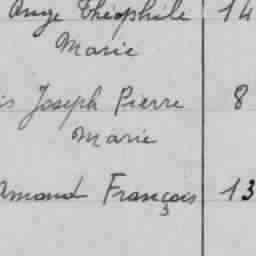 Ange Théophile 14
Marie
is Joseph Pierre 8
Marie
Armand François 13